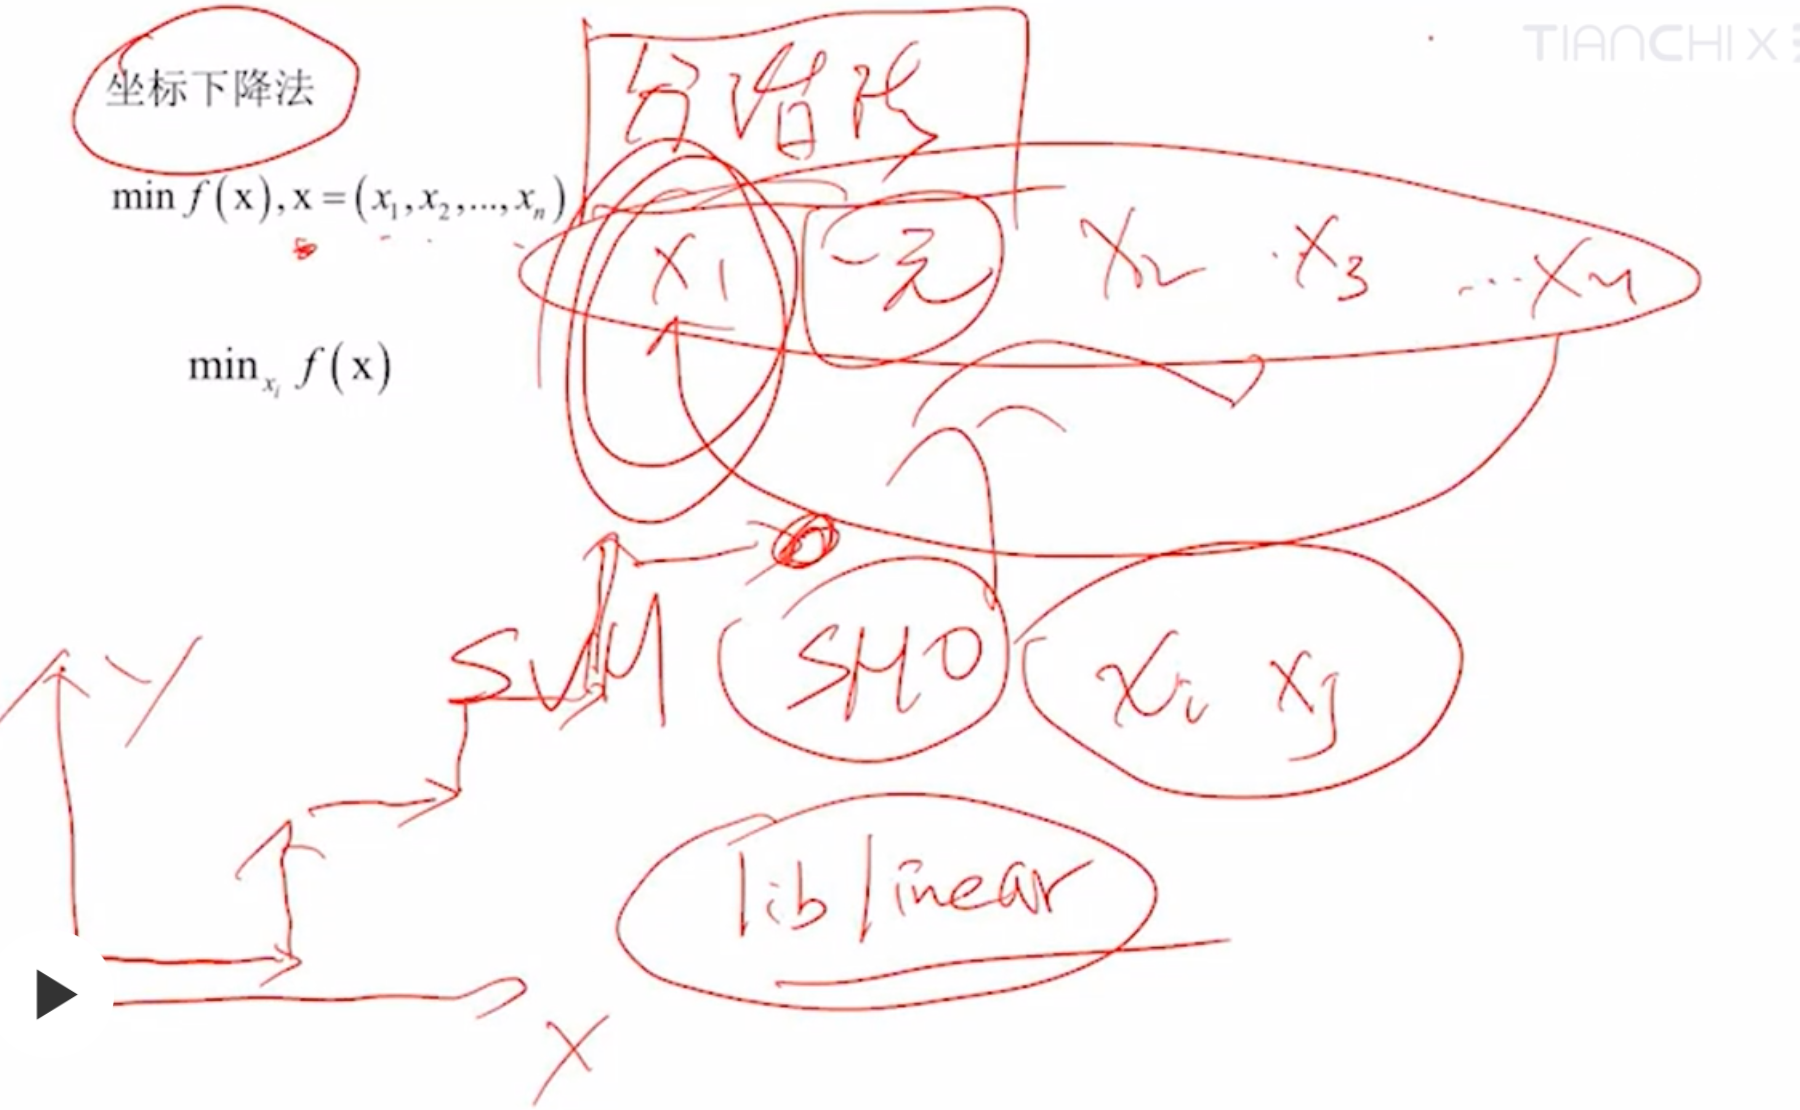 TIANCHI X
坐标下降法
分阶段
min f(x), x = (x₁, x₂, ..., xₙ)
x1 一元 x2 x3 ... xn
min_{x_i} f(x)
SVM SMO xi xj
Y
liblinear
X